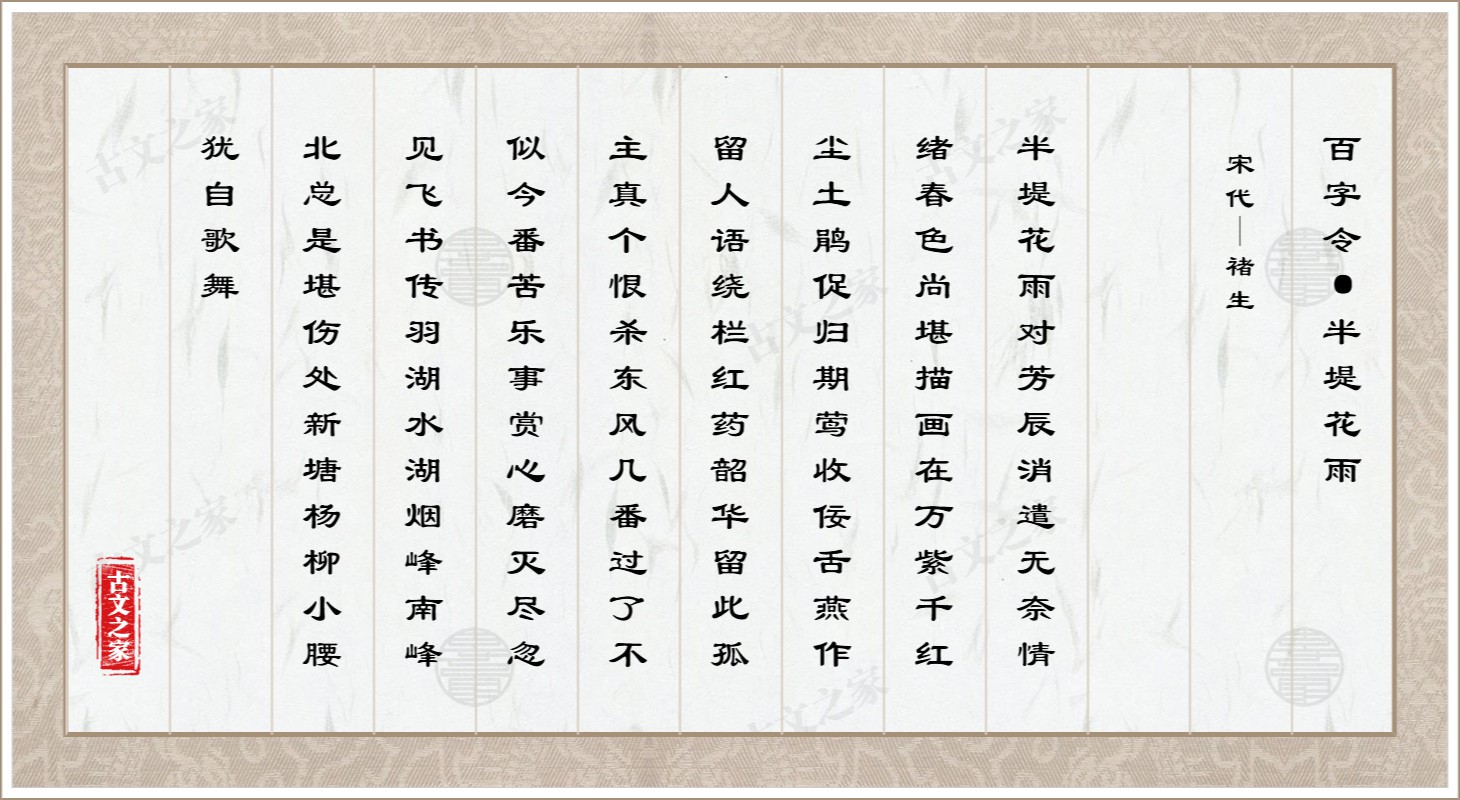 百字令●半堤花雨
宋代—褚生
半堤花雨对芳辰消遣无奈情
绪春色尚堪描画在万紫千红
尘土鹃促归期莺收佞舌燕作
留人语绕栏红药韶华留此孤
主真个恨杀东风几番过了不
似今番苦乐事赏心磨灭尽忽
见飞书传羽湖水湖烟峰南峰
北总是堪伤处新塘杨柳小腰
犹自歌舞
古文之家
古文之家
古文之家
古文之家
古文之家
古文之家
古文之家